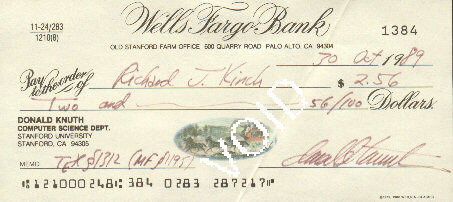 11-24/283
1210(8)
Wells Fargo Bank
1384
OLD STANFORD FARM OFFICE, 600 QUARRY ROAD PALO ALTO, CA 94304
30 Oct 1989
Pay to the order of Richard J. Kinch $ 2.56
Two and 56/100 Dollars
VOID
DONALD KNUTH
COMPUTER SCIENCE DEPT.
STANFORD UNIVERSITY
STANFORD, CA 94305
MEMO TEX p1312 (MF p1195)
121000248 384 0283 287217